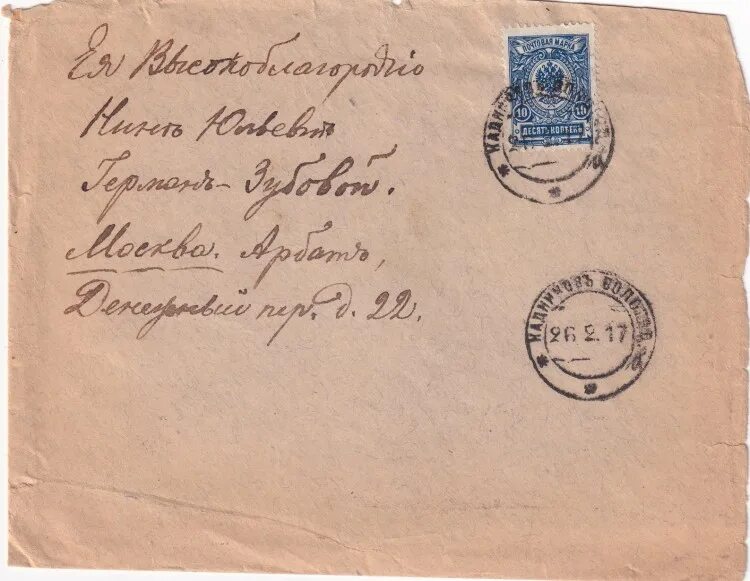 Ея Высокоблагородію
Нинѣ Юльевнѣ
Германъ-Зубовой.
Москва. Арбатъ,
Денежный пер. д. 22.
ПОЧТОВАЯ МАРКА
10 10
ДЕСЯТЬ КОПѢЕКЪ
КАДНИКОВЪ ВОЛОГОД.
КАДНИКОВЪ ВОЛОГОД.
26 2.17